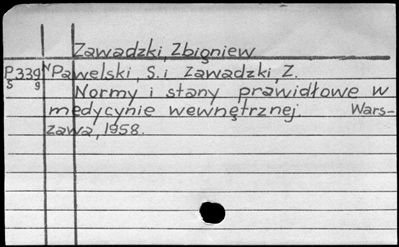 Zawadzki, Zbigniew
P339N Pawelski, S. i Zawadzki, Z.
S 9 Normy i stany prawidłowe w
medycynie wewnętrznej. Wars-
zawa, 1958.